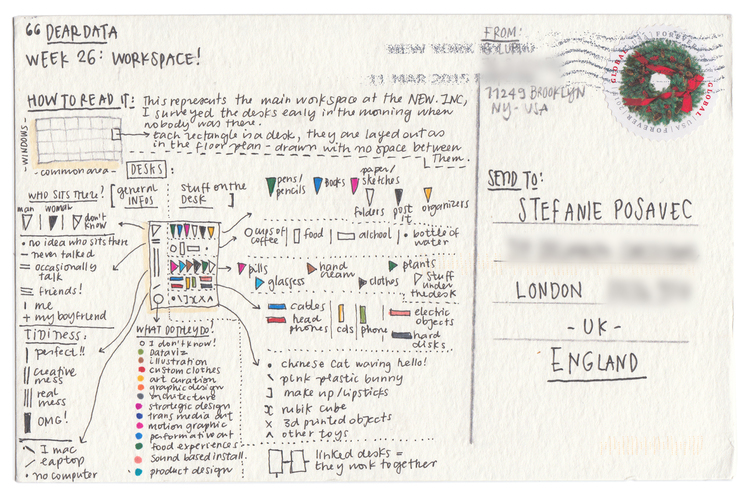 DEAR DATA
WEEK 26: WORKSPACE!
HOW TO READ IT: This represents the main workspace at the NEW.INC,
I surveyed the desks early in the morning when
nobody was there.
Each rectangle is a desk, they are layed out as
in the floor plan - drawn with no space between
Them.
-WINDOWS-
-common area-
DESKS:
WHO SITS THERE?
[general INFOS
stuff on the DESK]
man
woman
don't know
• no idea who sits there
— never talked
= occasionally talk
friends!
| me
+ my boyfriend
TIDINESS:
| perfect!!
|| creative mess
||| real mess
OMG!
\ I mac
/ laptop
• no computer
pens/pencils
BOOKS
paper/sketches
folders
post it
organizers
cups of coffee
food
alchool
bottle of water
pills
hand cream
plants
glasses
clothes
stuff under the desk
cables
head phones
cds
phone
electric objects
hard disks
WHAT DO THEY DO?
I don't know!
Dataviz
illustration
custom clothes
art curation
graphic design
architecture
strategic design
trans media art
motion graphic
performative art
food experiences
Sound based install.
product design
• chinese cat waving hello!
\ pink plastic bunny
] make up/lipsticks
rubik cube
x 3d printed objects
^ other toys
linked desks =
they work together
FROM:
NEW YORK
11 MAR 2015
11249 BROOKLYN
NY - USA
GLOBAL
FOREVER
GLOBAL
USA
FOREVER
SEND TO:
STEFANIE POSAVEC
LONDON
- UK -
ENGLAND